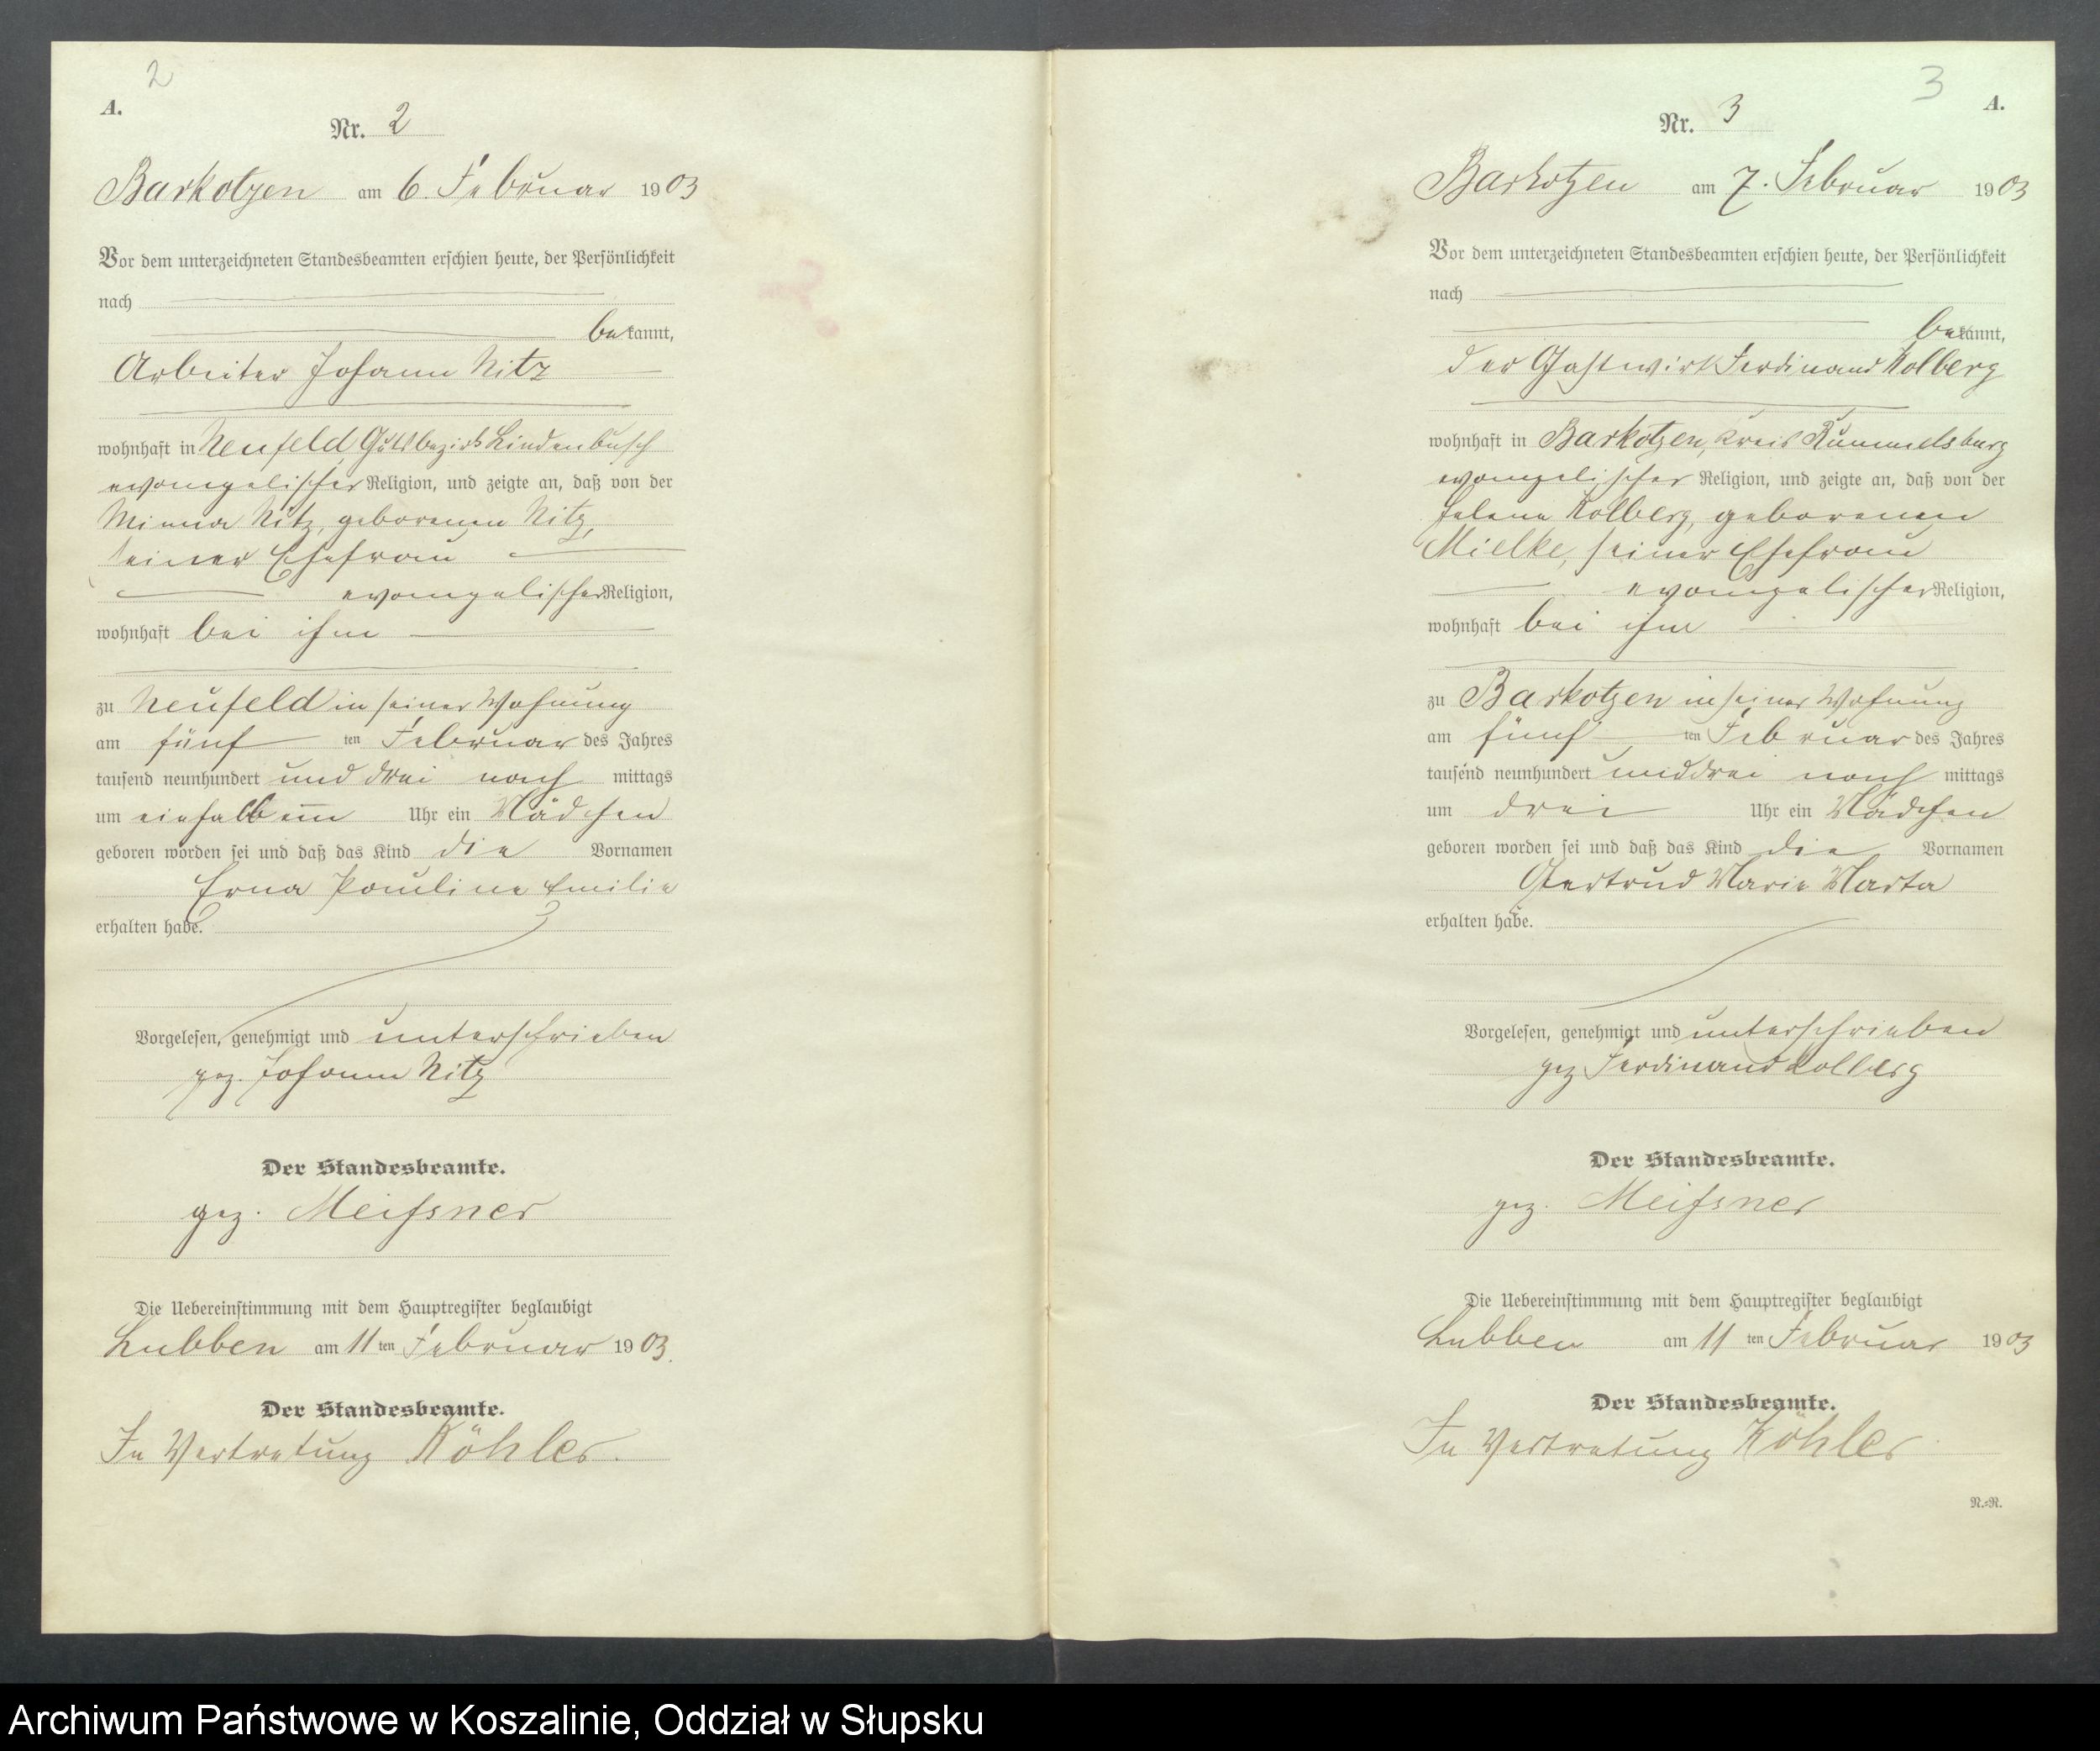 2
A.
Nr. 2
Barkotzen am 6. Februar 1903
Vor dem unterzeichneten Standesbeamten erschien heute, der Persönlichkeit
nach
bekannt,
Arbeiter Johann Nitz
wohnhaft in Neufeld, Gutsbezirk Lindenbusch
evangelischer Religion, und zeigte an, daß von der
Minna Nitz, geborenen Nitz,
seiner Ehefrau
evangelischer Religion,
wohnhaft bei ihm
zu Neufeld in seiner Wohnung
am fünf ten Februar des Jahres
tausend neunhundert und drei nach mittags
um einhalb ein Uhr ein Mädchen
geboren worden sei und daß das Kind die Vornamen
Erna Pauline Emilie
erhalten habe.
Vorgelesen, genehmigt und unterschrieben
gez. Johann Nitz
Der Standesbeamte.
gez. Meißner
Die Uebereinstimmung mit dem Hauptregister beglaubigt
Lubben am 11 ten Februar 1903.
Der Standesbeamte.
In Vertretung Köhler.
3
A.
Nr. 3
Barkotzen am 7. Februar 1903
Vor dem unterzeichneten Standesbeamten erschien heute, der Persönlichkeit
nach
bekannt,
der Gastwirt Ferdinand Kolberg
wohnhaft in Barkotzen, Kreis Rummelsburg
evangelischer Religion, und zeigte an, daß von der
Helene Kolberg, geborenen
Mielke, seiner Ehefrau
evangelischer Religion,
wohnhaft bei ihm
zu Barkotzen in seiner Wohnung
am fünf ten Februar des Jahres
tausend neunhundert und drei nach mittags
um drei Uhr ein Mädchen
geboren worden sei und daß das Kind die Vornamen
Gertrud Marie Marta
erhalten habe.
Vorgelesen, genehmigt und unterschrieben
gez Ferdinand Kolberg
Der Standesbeamte.
gez. Meißner
Die Uebereinstimmung mit dem Hauptregister beglaubigt
Lubben am 11 ten Februar 1903
Der Standesbeamte.
In Vertretung Köhler.
N.=R.
Archiwum Państwowe w Koszalinie, Oddział w Słupsku